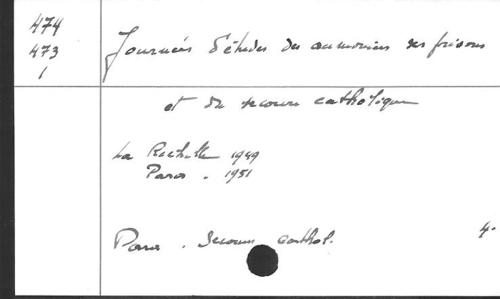 474
473
1
Journées d'études des aumoniers des prisons
et du secours catholique
La Rochelle 1949
Paris . 1951
Paris . Secours cathol.
4°